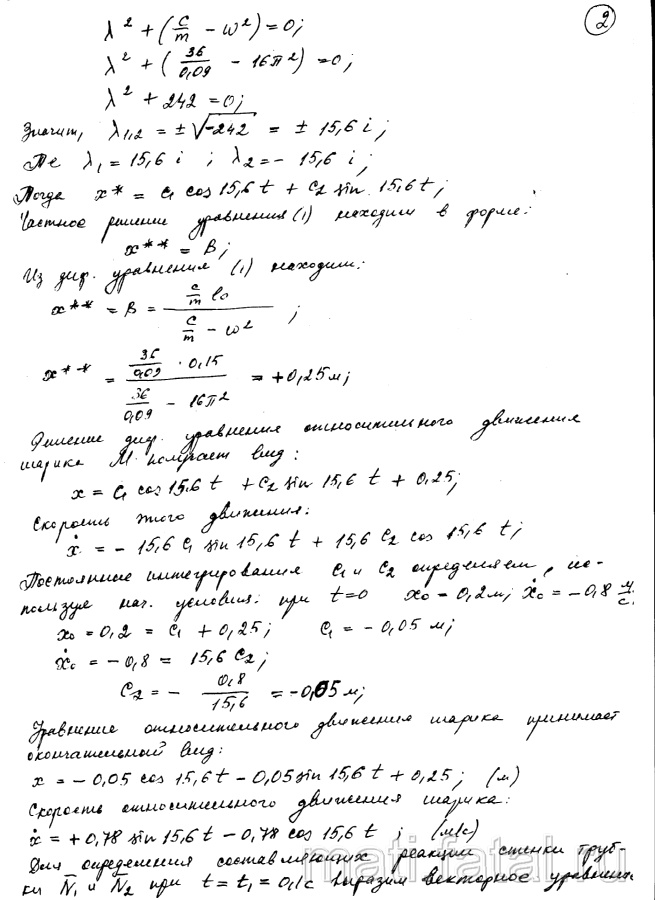 2
λ² + (c/m − ω²) = 0;
λ² + (36/0,09 − 16π²) = 0;
λ² + 242 = 0;
Значит, λ1,2 = ± √−242 = ± 15,6 i;
Те λ₁ = 15,6 i ; λ₂ = − 15,6 i;
Тогда x* = C₁ cos 15,6 t + C₂ sin 15,6 t;
Частное решение уравнения (1) находим в форме:
x** = B;
Из диф. уравнения (1) находим:
x** = B = (c/m l₀)/(c/m − ω²) ;
x** = (36/0,09 · 0,15)/(36/0,09 − 16π²) = +0,25 м;
Решение диф. уравнения относительного движения
шарика M получает вид:
x = C₁ cos 15,6 t + C₂ sin 15,6 t + 0,25;
Скорость этого движения:
ẋ = − 15,6 C₁ sin 15,6 t + 15,6 C₂ cos 15,6 t;
Постоянные интегрирования C₁ и C₂ определяем, ис-
пользуя нач. условия: при t=0 x₀ = 0,2 м; ẋ₀ = −0,8 м/с.
x₀ = 0,2 = C₁ + 0,25; C₁ = − 0,05 м;
ẋ₀ = − 0,8 = 15,6 C₂;
C₂ = − 0,8/15,6 = −0,05 м;
Уравнение относительного движения шарика принимает
окончательный вид:
x = − 0,05 cos 15,6 t − 0,05 sin 15,6 t + 0,25; (м)
Скорость относительного движения шарика:
ẋ = + 0,78 sin 15,6 t − 0,78 cos 15,6 t ; (м/с)
Для определения составляющих реакции стенки труб-
ки N̄₁ и N̄₂ при t = t₁ = 0,1 с выразим векторное уравнение
mati.fatal.ru